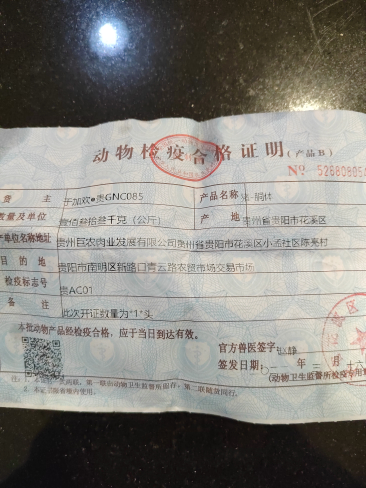 动物检疫合格证明(产品B)
No 52680805
货 主 于加欢•贵GNC085 产品名称 猪-胴体
数量及单位 壹佰叁拾叁千克(公斤) 产 地 贵州省贵阳市花溪区
产单位名称地址 贵州巨农肉业发展有限公司贵州省贵阳市花溪区小孟社区陈亮村
目 的 地 贵阳市南明区新路口青云路农贸市场交易市场
检疫标志号 贵AC01
备 注 此次开证数量为"1"头
本批动物产品经检疫合格,应于当日到达有效。
官方兽医签字:
签发日期: 二 年 二 月 十六
(动物卫生监督所检疫专用章